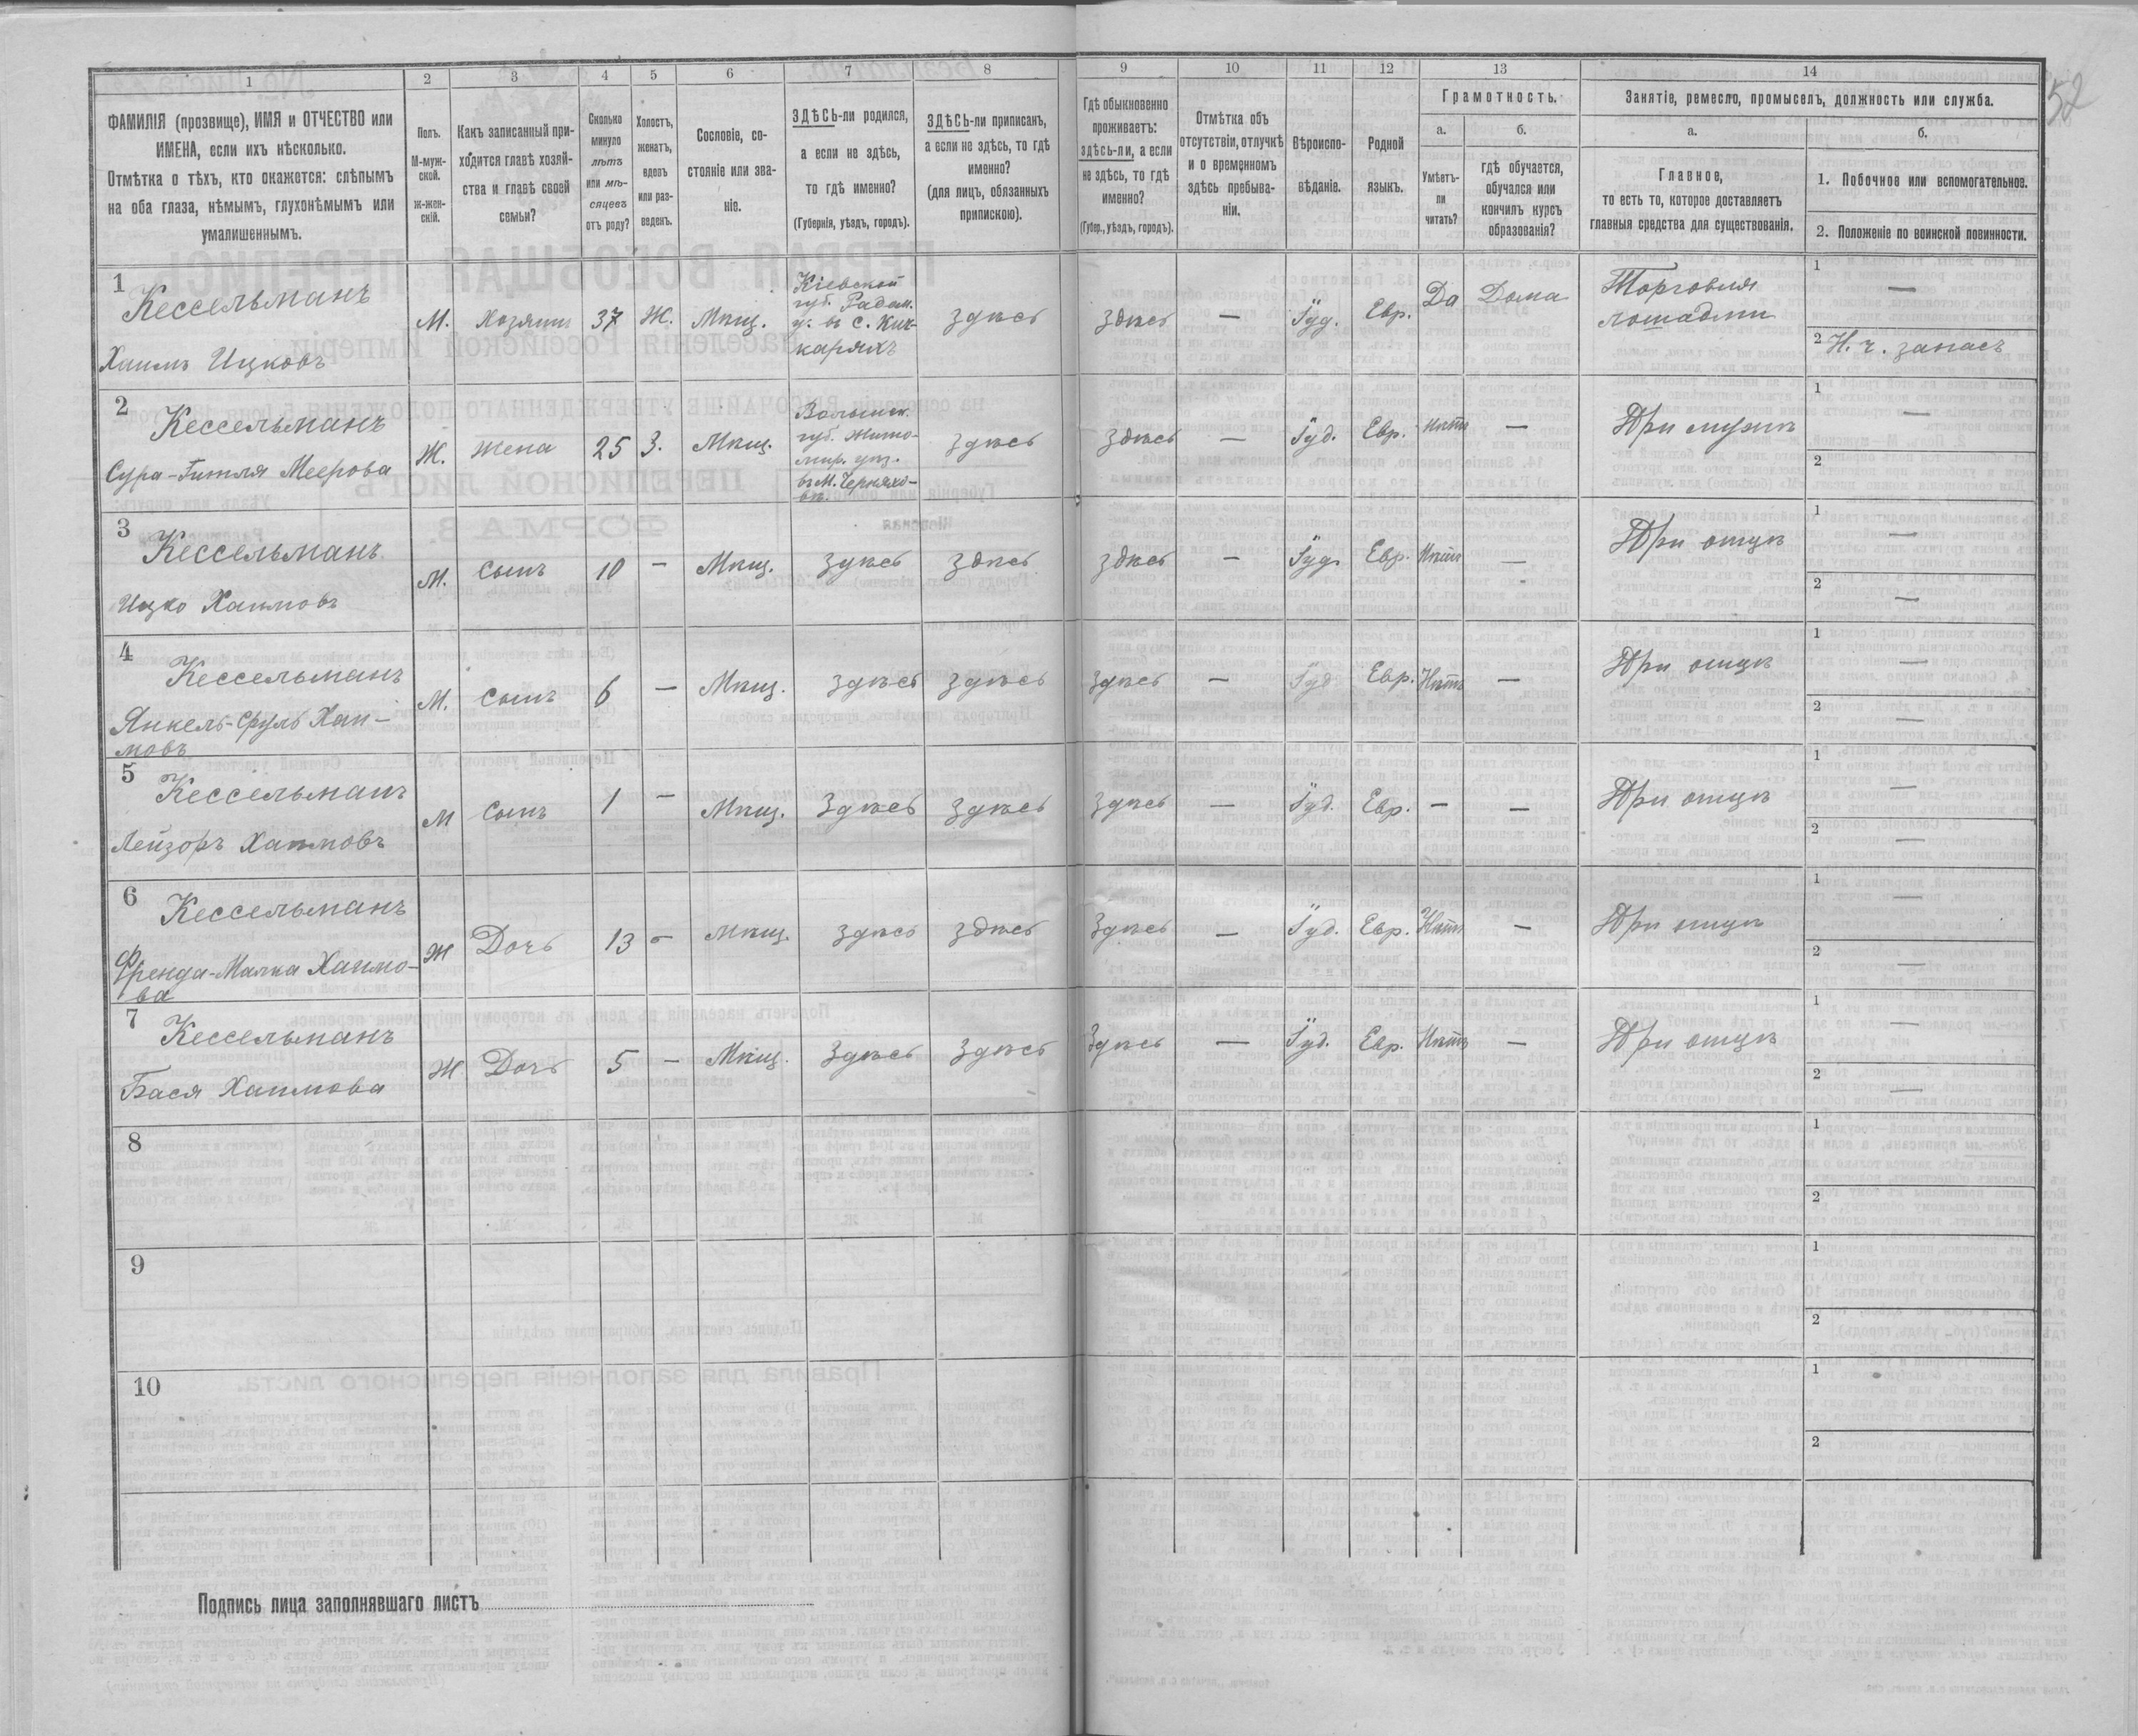 52
1 2 3 4 5 6 7 8 9 10 11 12 13 14
ФАМИЛІЯ (прозвище), ИМЯ и ОТЧЕСТВО или
ИМЕНА, если ихъ нѣсколько.
Отмѣтка о тѣхъ, кто окажется: слѣпымъ
на оба глаза, нѣмымъ, глухонѣмымъ или
умалишеннымъ.
Полъ.
М-муж-
ской.
ж-жен-
скій.
Какъ записанный при-
ходится главѣ хозяй-
ства и главѣ своей
семьи?
Сколько
минуло
лѣтъ
или мѣ-
сяцевъ
отъ роду?
Холостъ,
женатъ,
вдовъ
или раз-
веденъ.
Сословіе, со-
стояніе или зва-
ніе.
ЗДѢСЬ-ли родился,
а если не здѣсь,
то гдѣ именно?
(Губернія, уѣздъ, городъ).
ЗДѢСЬ-ли приписанъ,
а если не здѣсь, то гдѣ
именно?
(для лицъ, обязанныхъ
припискою).
Гдѣ обыкновенно
проживаетъ:
здѣсь-ли, а если
не здѣсь, то гдѣ
именно?
(Губер., уѣздъ, городъ).
Отмѣтка объ
отсутствіи, отлучкѣ
и о временномъ
здѣсь пребыва-
ніи.
Вѣроиспо-
вѣданіе.
Родной
языкъ.
Грамотность.
а.
Умѣетъ-
ли
читать?
б.
гдѣ обучается,
обучался или
кончилъ курсъ
образованія?
Занятіе, ремесло, промыселъ, должность или служба.
а.
Главное,
то есть то, которое доставляетъ
главныя средства для существованія.
б.
1. Побочное или вспомогательное.
2. Положеніе по воинской повинности.
1
Кессельманъ
Хаимъ Ицковъ
М. Хозяинъ 37 Ж. Мѣщ.
Кіевской
губ. Радом.
у. въ с. Кич-
каряхъ
здѣсь здѣсь — Іуд. Евр. Да Дома
Торговля
лошадьми
1 —
2 Н. ч. запасъ
2
Кессельманъ
Сура-Гитля Меерова
Ж. Жена 25 З. Мѣщ.
Волынск.
губ. Жито-
мир. уѣз.
въ м. Черняхо-
вѣ.
здѣсь здѣсь — Іуд. Евр. Нѣтъ — При мужѣ
1 —
2
3
Кессельманъ
Ицко Хаимовъ
М. Сынъ 10 — Мѣщ. здѣсь здѣсь здѣсь — Іуд. Евр. Нѣтъ — При отцѣ
1 —
2 —
4
Кессельманъ
Янкель-Сруль Хаи-
мовъ
М. Сынъ 6 — Мѣщ. здѣсь здѣсь здѣсь — Іуд Евр. Нѣтъ — При отцѣ
1 —
2 —
5
Кессельманъ
Лейзоръ Хаимовъ
М Сынъ 1 — Мѣщ. Здѣсь здѣсь здѣсь — Іуд. Евр. — — При отцѣ
1 —
2 —
6
Кессельманъ
Френда-Малка Хаимо-
ва
Ж Дочь 13 — Мѣщ. здѣсь здѣсь здѣсь — Іуд. Евр. Нѣтъ — При отцѣ
1 —
2 —
7
Кессельманъ
Бася Хаимова
Ж Дочь 5 — Мѣщ. Здѣсь здѣсь Здѣсь — Іуд. Евр. Нѣтъ — При отцѣ
1 —
2 —
8
1
2
9
1
2
10
1
2
Подпись лица заполнявшаго листъ